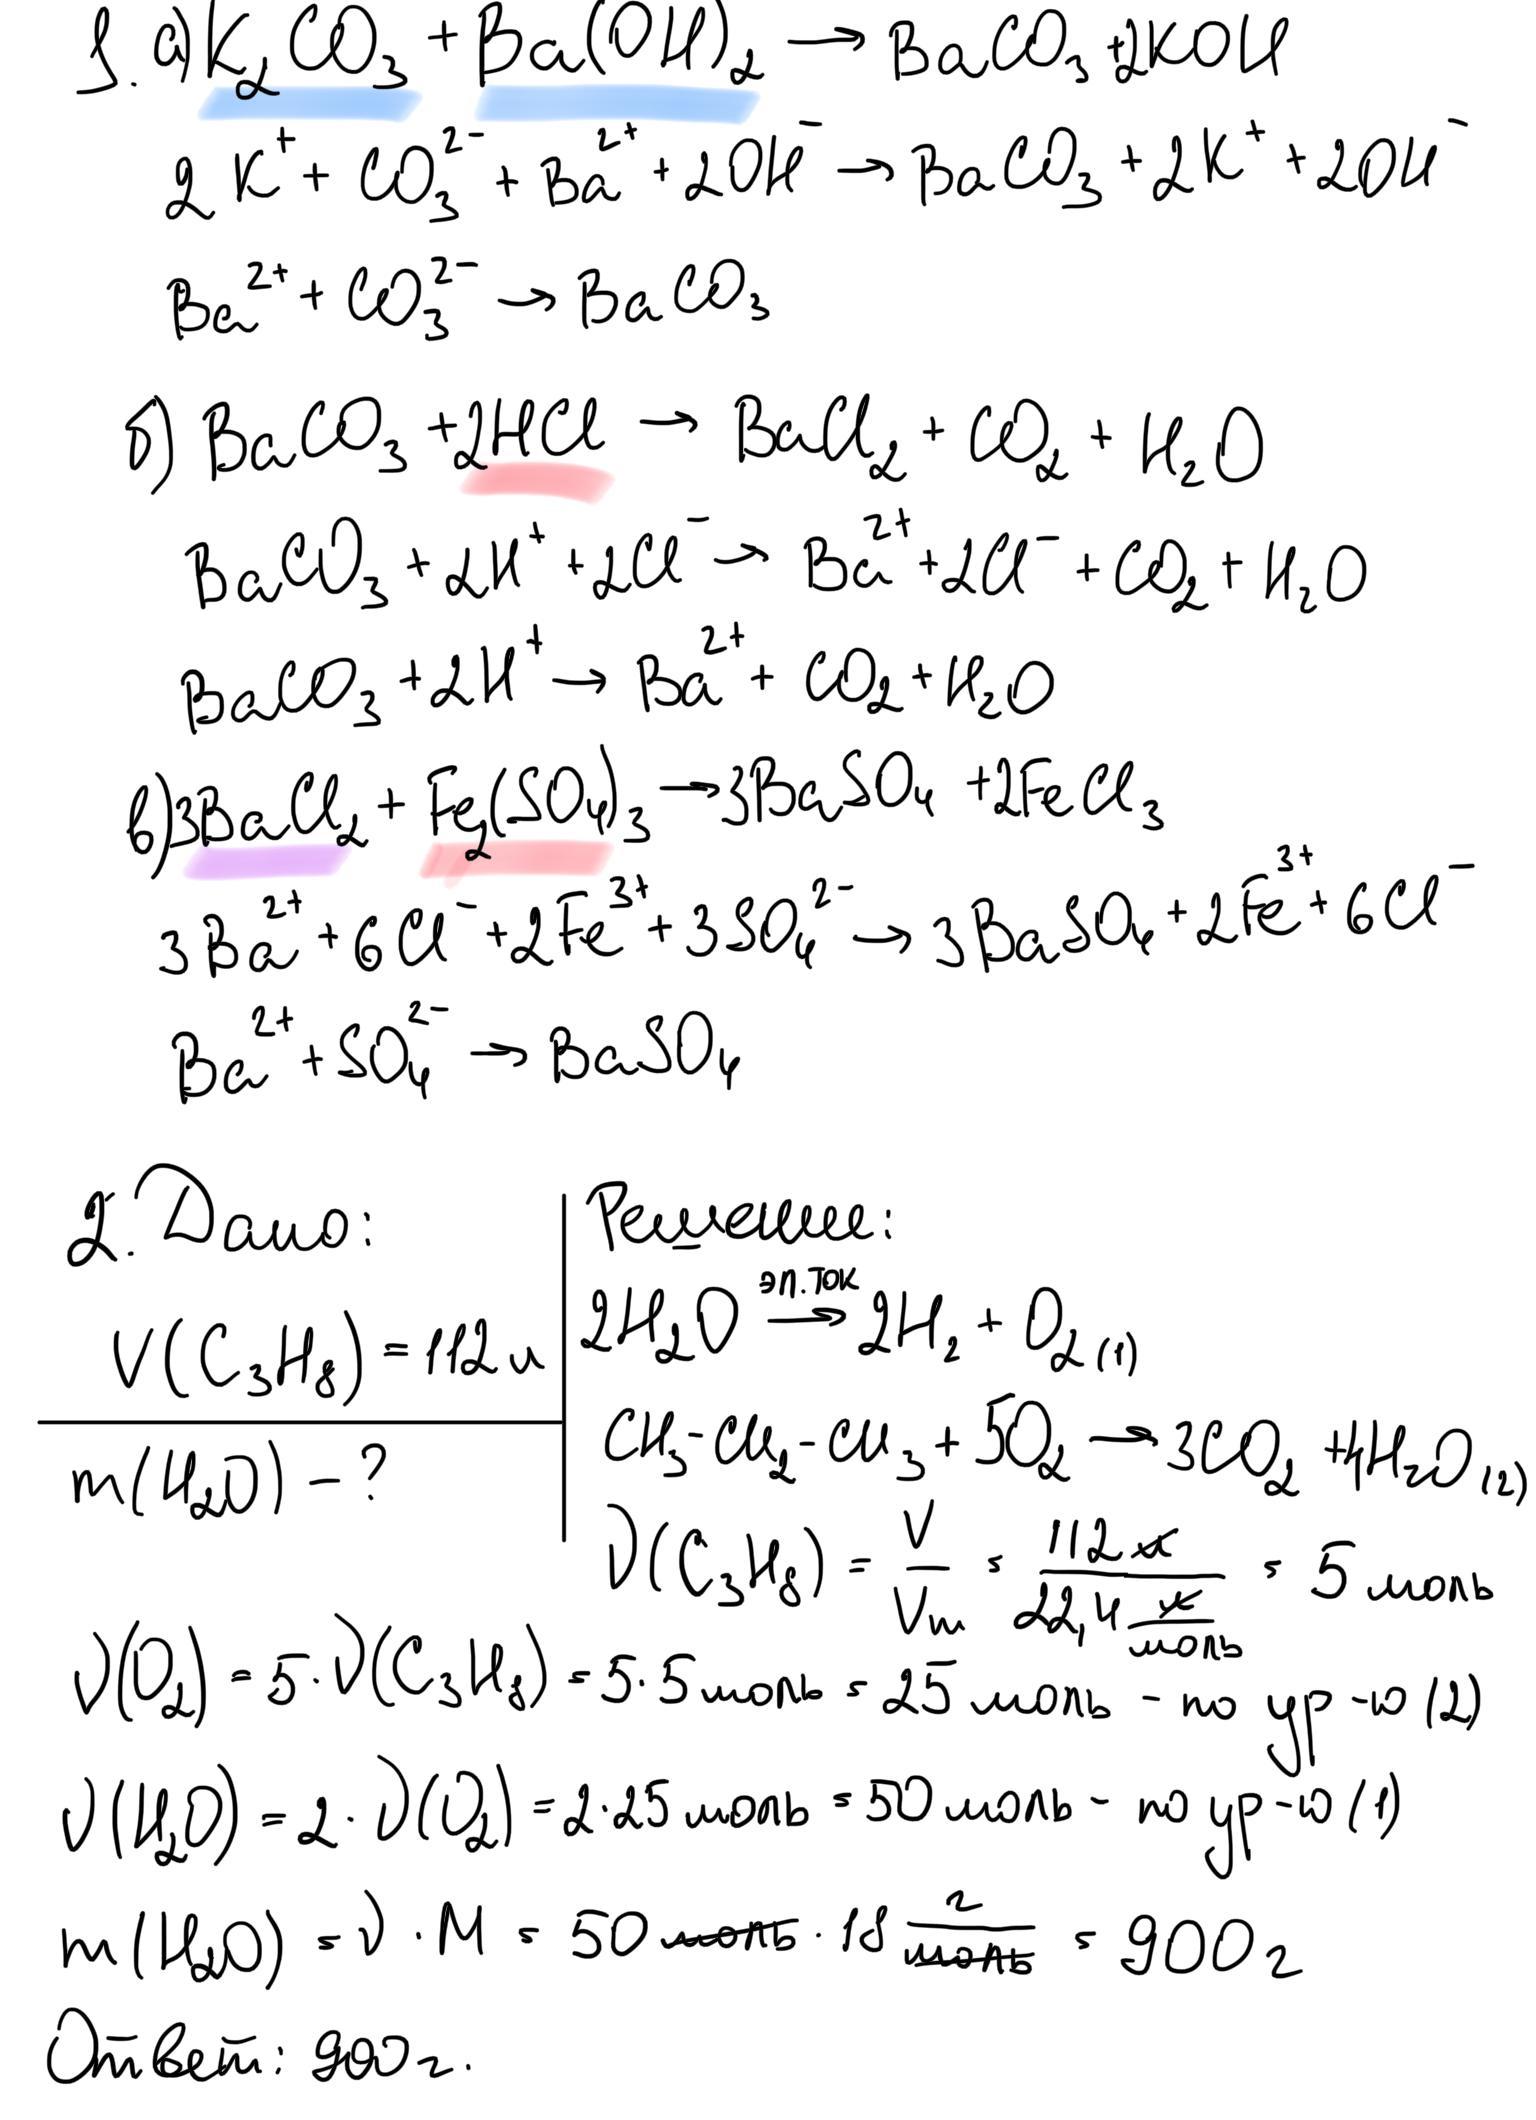 1. а) K₂CO₃ + Ba(OH)₂ → BaCO₃ + 2KOH
2K⁺ + CO₃²⁻ + Ba²⁺ + 2OH⁻ → BaCO₃ + 2K⁺ + 2OH⁻
Ba²⁺ + CO₃²⁻ → BaCO₃
б) BaCO₃ + 2HCl → BaCl₂ + CO₂ + H₂O
BaCO₃ + 2H⁺ + 2Cl⁻ → Ba²⁺ + 2Cl⁻ + CO₂ + H₂O
BaCO₃ + 2H⁺ → Ba²⁺ + CO₂ + H₂O
в) 3BaCl₂ + Fe₂(SO₄)₃ → 3BaSO₄ + 2FeCl₃
3Ba²⁺ + 6Cl⁻ + 2Fe³⁺ + 3SO₄²⁻ → 3BaSO₄ + 2Fe³⁺ + 6Cl⁻
Ba²⁺ + SO₄²⁻ → BaSO₄
2. Дано:
V(C₃H₈) = 112 л
m(H₂O) - ?
Решение:
2H₂O эл.ток → 2H₂ + O₂ (1)
CH₃-CH₂-CH₃ + 5O₂ → 3CO₂ + 4H₂O (2)
ν(C₃H₈) = V/Vm = 112 л / 22,4 л/моль = 5 моль
ν(O₂) = 5·ν(C₃H₈) = 5·5 моль = 25 моль - по ур-ю (2)
ν(H₂O) = 2·ν(O₂) = 2·25 моль = 50 моль - по ур-ю (1)
m(H₂O) = ν·M = 50 моль · 18 г/моль = 900 г
Ответ: 900 г.